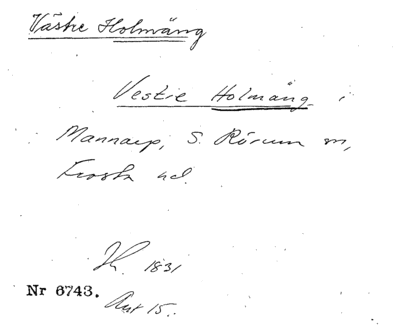 Västre Holmäng
Vestre Holmäng i
Mannarp, S. Rörum sn,
Frosta hd.
Jh. 1831
Nr 6743.
Akt 15.